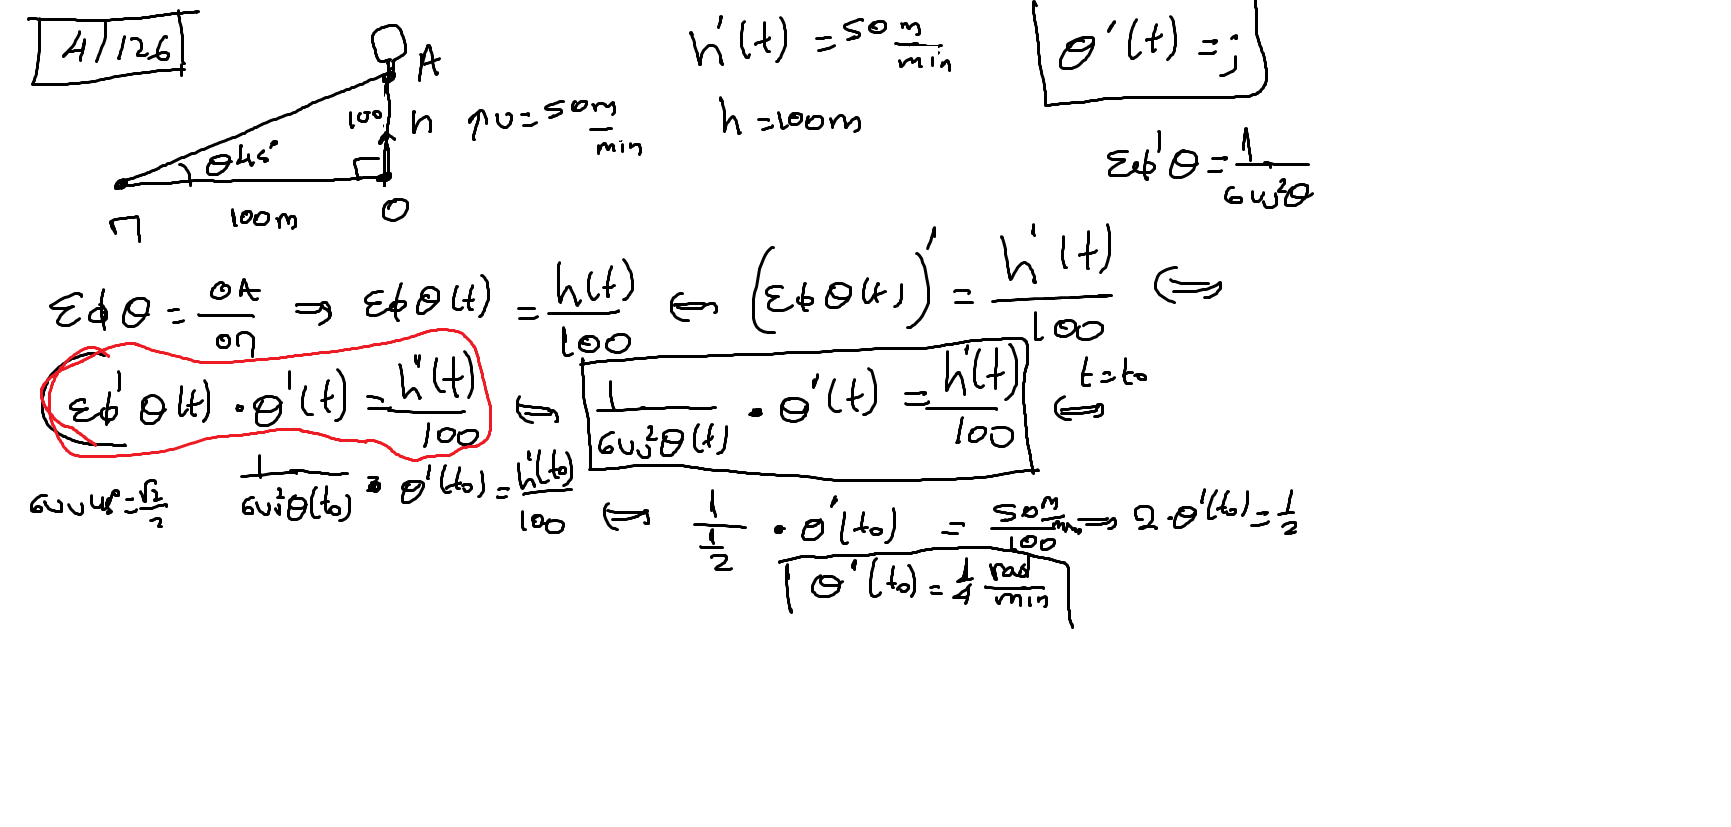 4/126
A
h'(t) = 50 m/min
θ'(t) = ;
100 h ↑υ = 50 m/min
h = 100m
θ 45°
εφ'θ = 1/συν²θ
Π 100m Ο
εφθ = ΟΑ/ΟΠ ⇒ εφθ(t) = h(t)/100 ⇔ (εφθ(t))' = h'(t)/100 ⇔
εφ'θ(t) · θ'(t) = h'(t)/100 ⇔ 1/συν²θ(t) · θ'(t) = h'(t)/100 ⇔ t=t₀
συν45° = √2/2
1/συν²θ(t₀) · θ'(t₀) = h'(t₀)/100 ⇔ 1/(1/2) · θ'(t₀) = 50 m/min/100 ⇒ 2·θ'(t₀) = 1/2
θ'(t₀) = 1/4 rad/min